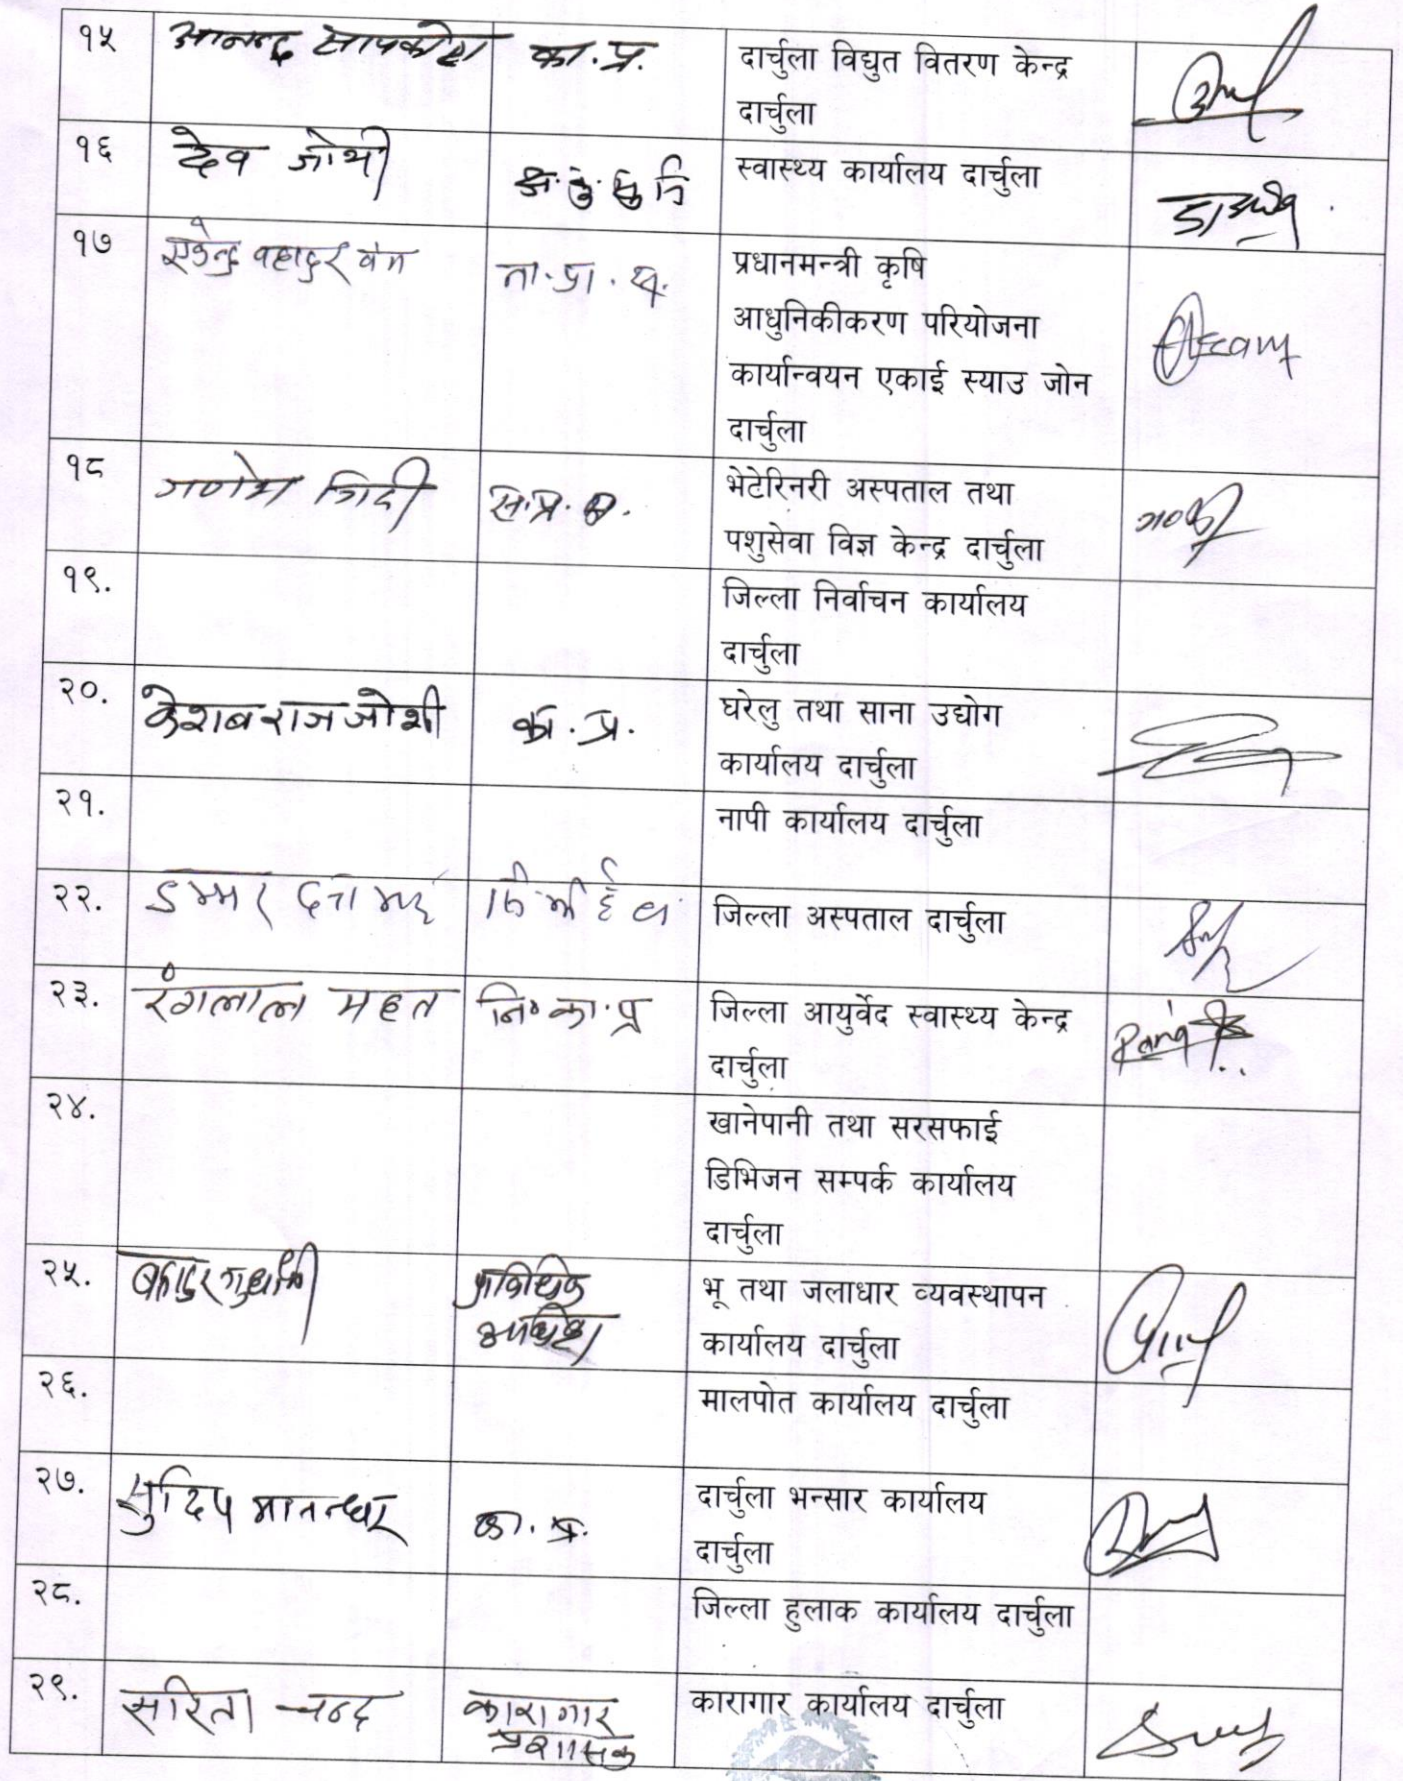 १५ आनन्द सापकोटा का.प्र. दार्चुला विद्युत वितरण केन्द्र
दार्चुला
१६ देव जोशी स्वास्थ्य कार्यालय दार्चुला
१७ बहादुर प्रधानमन्त्री कृषि
आधुनिकीकरण परियोजना
कार्यान्वयन एकाई स्याउ जोन
दार्चुला
१८ गणेश गिरी भेटेरिनरी अस्पताल तथा
पशुसेवा विज्ञ केन्द्र दार्चुला
१९. जिल्ला निर्वाचन कार्यालय
दार्चुला
२०. केशब राज जोशी का.प्र. घरेलु तथा साना उद्योग
कार्यालय दार्चुला
२१. नापी कार्यालय दार्चुला
२२. डम्मर दत्त जिल्ला अस्पताल दार्चुला
२३. रंगलाल महत नि०का.प्र जिल्ला आयुर्वेद स्वास्थ्य केन्द्र
दार्चुला
२४. खानेपानी तथा सरसफाई
डिभिजन सम्पर्क कार्यालय
दार्चुला
२५. भू तथा जलाधार व्यवस्थापन
कार्यालय दार्चुला
२६. मालपोत कार्यालय दार्चुला
२७. सुदिप मानन्धर का.प्र. दार्चुला भन्सार कार्यालय
दार्चुला
२८. जिल्ला हुलाक कार्यालय दार्चुला
२९. सरिता चन्द कारागार कारागार कार्यालय दार्चुला
प्रशासक